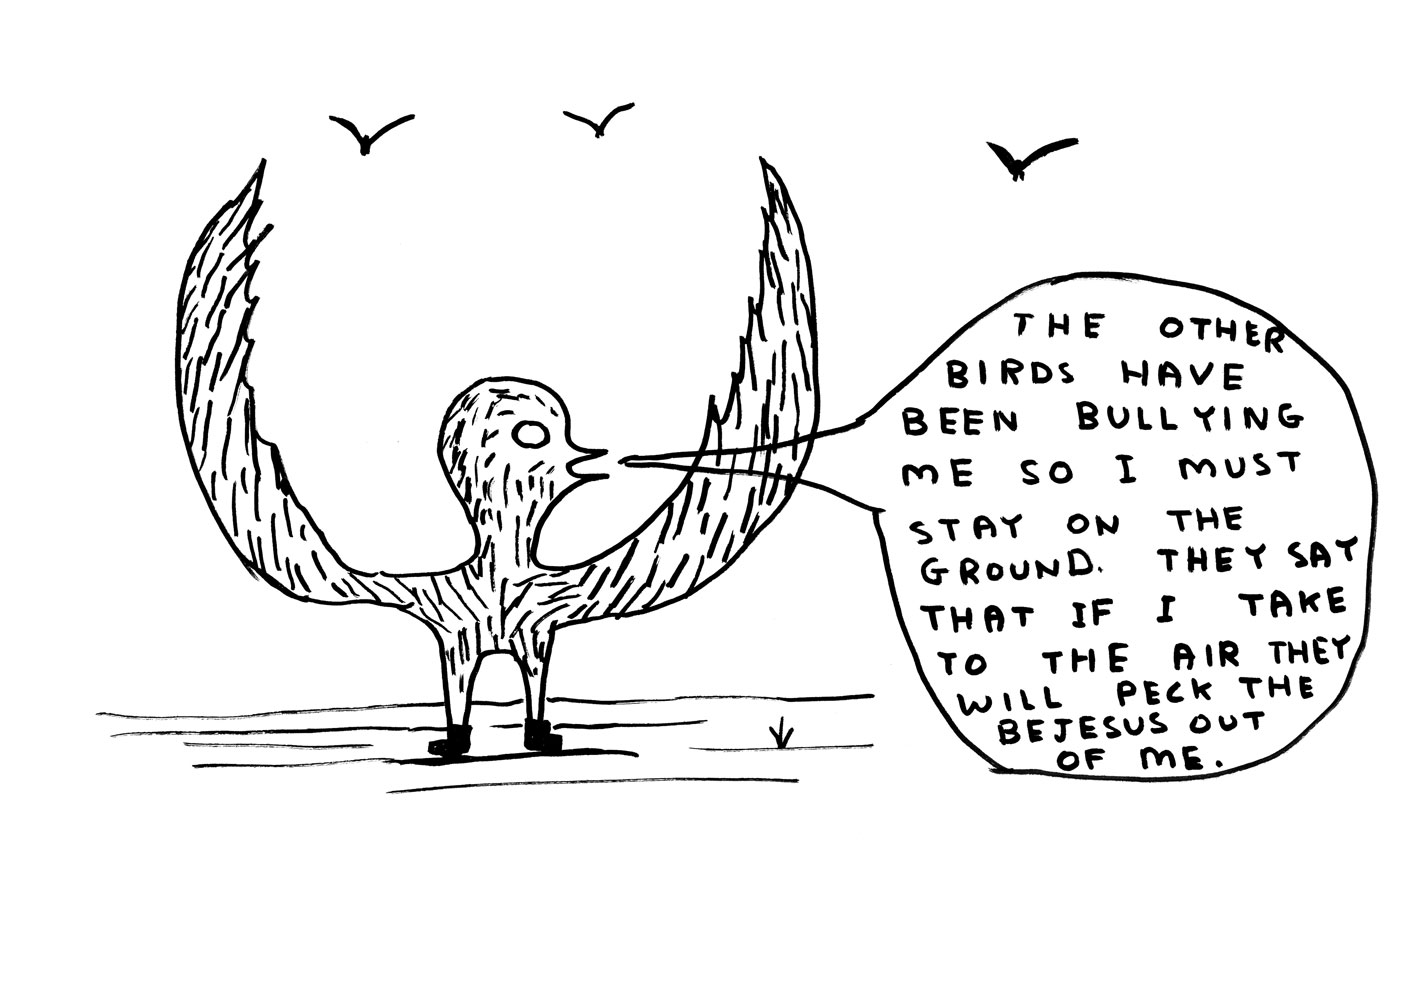 THE OTHER
BIRDS HAVE
BEEN BULLYING
ME SO I MUST
STAY ON THE
GROUND. THEY SAY
THAT IF I TAKE
TO THE AIR THEY
WILL PECK THE
BEJESUS OUT
OF ME.